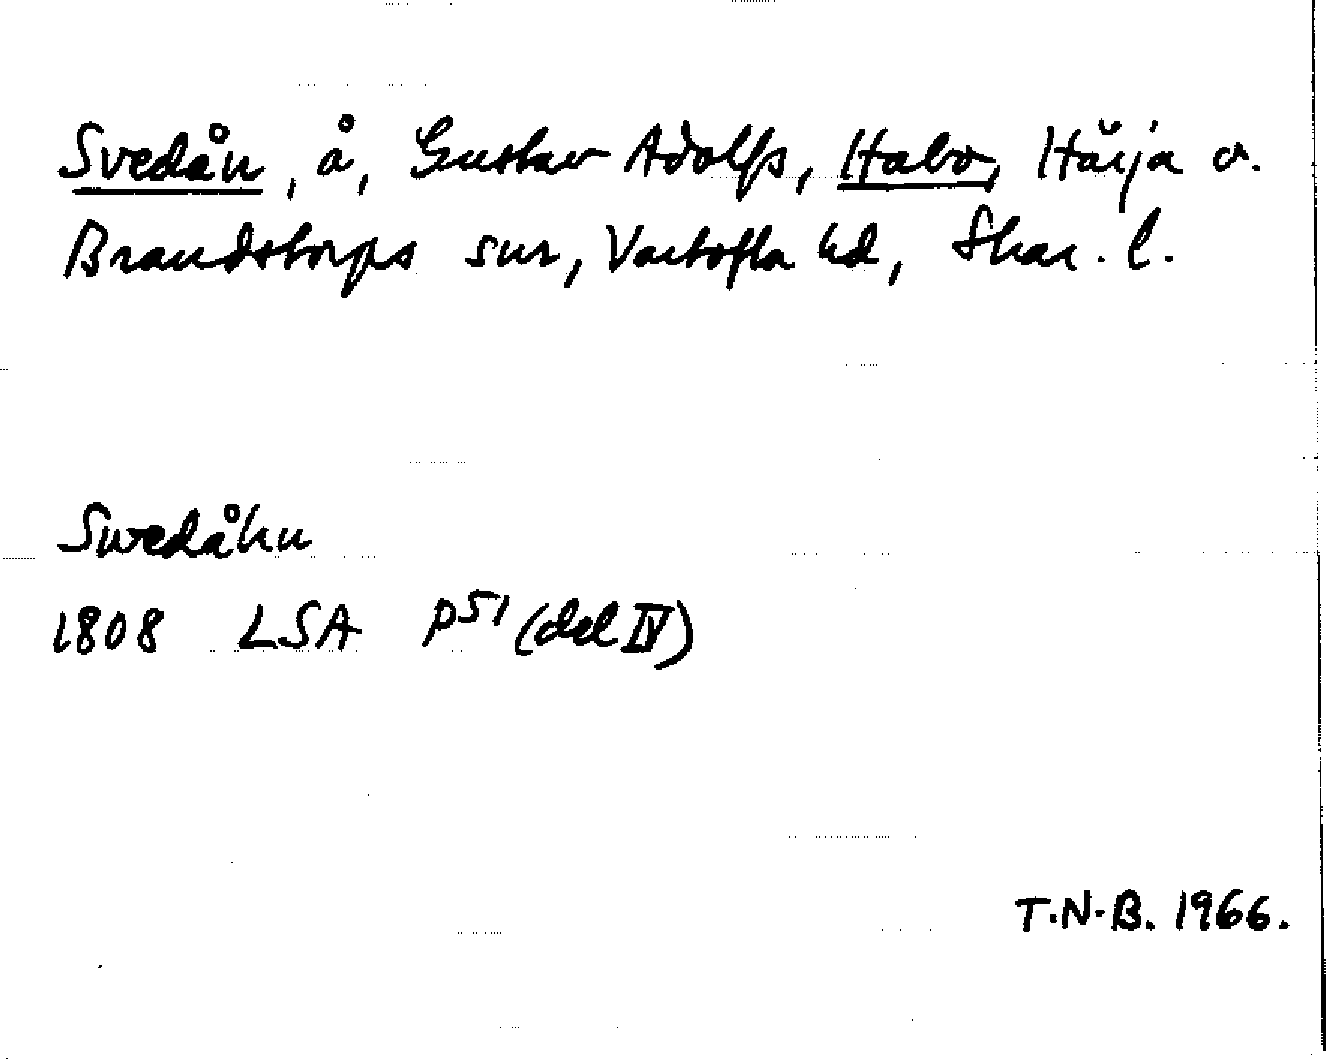 Svedån, å, Gustav Adolfs, Habo, Härja o.
Brandstorps snr, Vartofta hd, Skar. l.
Swedåhn
1808 LSA P51 (del IV)
T.N.B. 1966.